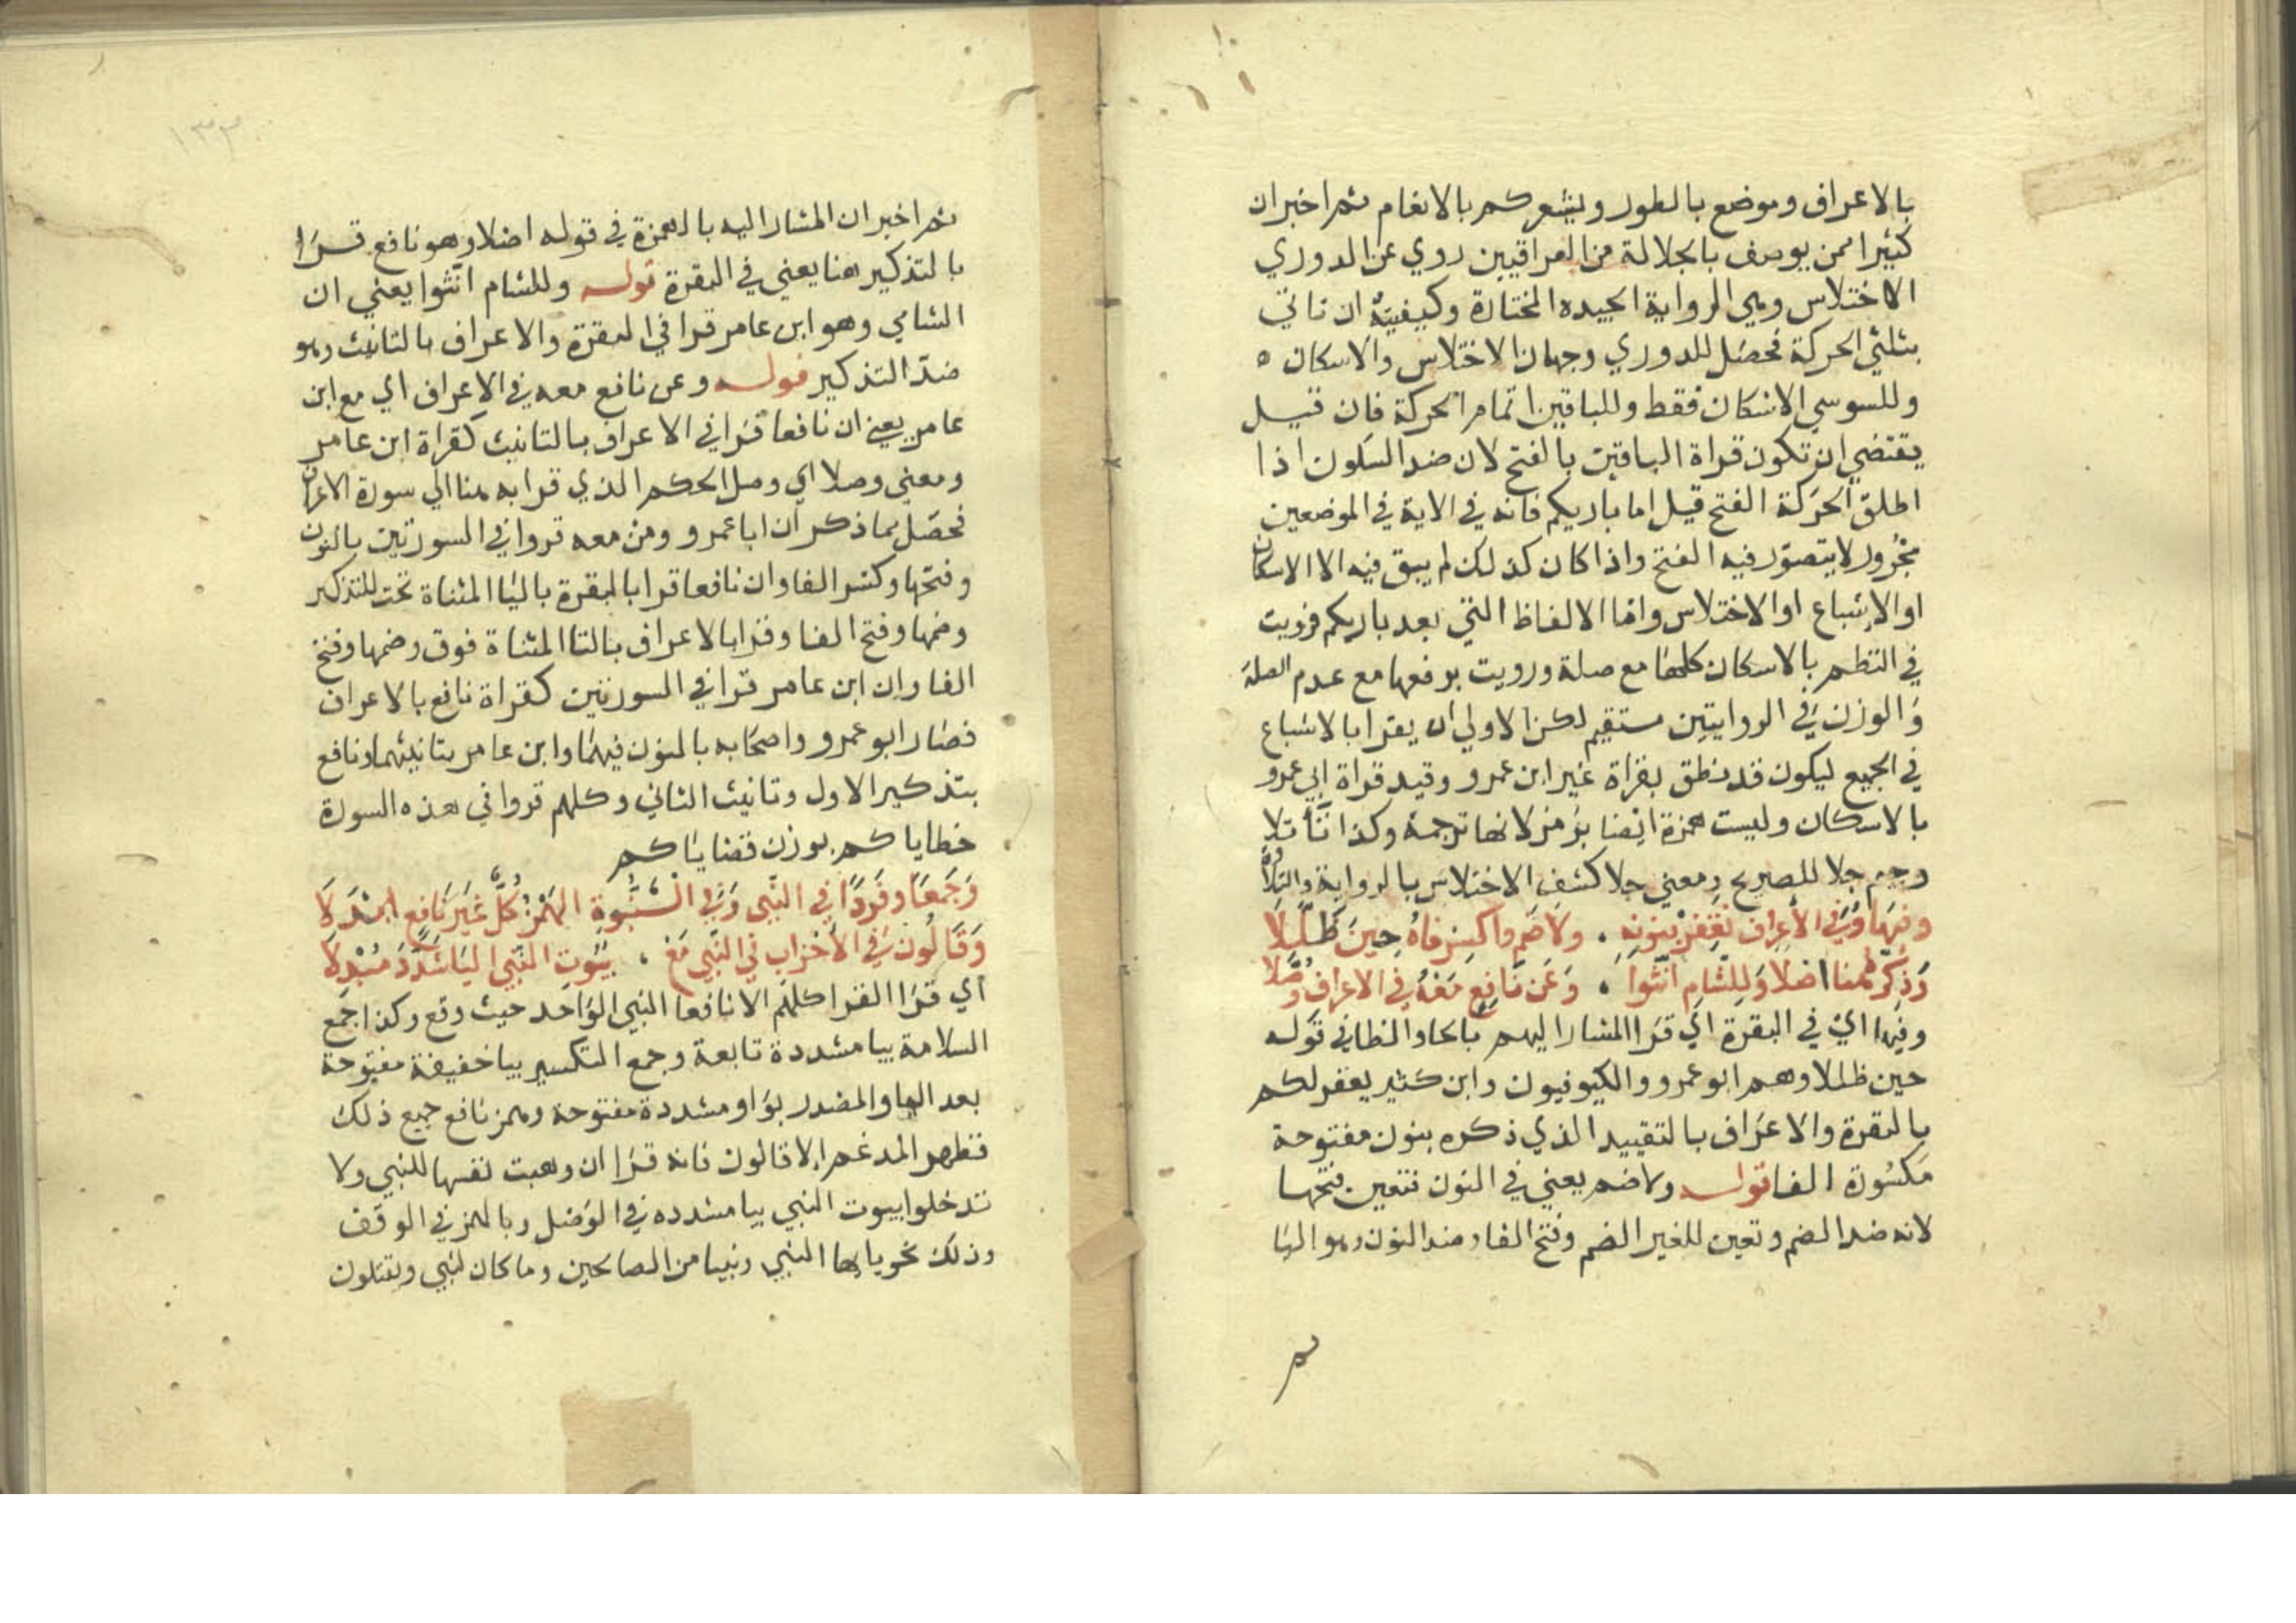 بالاعراف وموضع بالطور ويشعركم بالانعام ثم اخبر ان
كثيرا ممن يوصف بالجلالة من العراقيين روي عن الدوري
الاختلاس وهي الرواية الجيده المختارة وكيفيته ان تاتي
بثلثي الحركة فحصل للدوري وجهان الاختلاس والاسكان ه
وللسوسي الاسكان فقط وللباقين اتمام الحركة فان قيل
يقتضي ان تكون قراة الباقين بالفتح لان ضد السكون اذا
اطلق الحركة الفتح قيل اما باريكم فانه في الاية في الموضعين
مجرور لا يتصور فيه الفتح واذا كان كذلك لم يبق فيه الا الاسكان
او الاشباع او الاختلاس واما الالفاظ التي بعد باريكم فرويت
في النظم بالاسكان كلها مع صلة ورويت برفعها مع عدم الصلة
والوزن في الروايتين مستقيم لكن الاولي ان يقرا بالاشباع
في الجميع ليكون قد نطق بقراة غير ابن عمرو وقيد قراة ابي عمرو
بالاسكان وليست همزة ايضا برمز لانها ترجمة وكذا تا تلا
وجيم جلا للصريح ومعني جلا كشف الاختلاس بالرواية والتلاوة
وفيها وفي الاعراف نغفر بنونه . ولا ضم واكسر فاه حين ظللا
وذكر هنا اصلا وللشام انثوا . وعن نافع معه في الاعراف وصلا
وفيها اي في البقرة اي قرا المشار اليهم بالحا والظا في قوله
حين ظللا وهم ابو عمرو والكوفيون وابن كثير يغفر لكم
بالبقرة والاعراف بالتقييد الذي ذكره بنون مفتوحة
مكسورة الفا قوله ولا ضم يعني في النون فتعين فتحها
لانه ضد الضم وتعين للغير الضم وفتح الفا وضد النون وهو اليا
ثم اخبر ان المشار اليه بالهمزة في قوله اصلا وهو نافع قرا
بالتذكير هنا يعني في البقرة قوله وللشام انثوا يعني ان
الشامي وهو ابن عامر قرا في البقرة والاعراف بالتانيث وهو
ضد التذكير قوله وعن نافع معه في الاعراف اي مع ابن
عامر يعني ان نافعا قرا في الاعراف بالتانيث كقراة ابن عامر
ومعني وصلا اي وصل الحكم الذي قرا به هنا الي سورة الاعراف
فحصل مما ذكر ان ابا عمرو ومن معه قروا في السورتين بالنون
وفتحها وكسر الفا وان نافعا قرا بالبقرة باليا المثناة تحت للتذكير
وضمها وفتح الفا وقرا بالاعراف بالتا المثناة فوق وضمها وفتح
الفا وان ابن عامر قرا في السورتين كقراة نافع بالاعراف
فصار ابو عمرو واصحابه بالنون فيهما وابن عامر بتانيثهما ونافع
بتذكير الاول وتانيث الثاني وكلهم قروا في هذه السورة
خطاياكم بوزن قضاياكم
وجمعا وفردا في النبي وفي النبوة الهمز كل غير نافع ابدلا
وقالون في الاحزاب في النبي مع . بيوت النبي اليا شدد مبدلا
اي قرا القرا كلهم الا نافعا النبي الواحد حيث وقع وكذا جمع
السلامة بيا مشددة تابعة وجمع التكسير بيا خفيفة مفتوحة
بعد الها والمصدر بواو مشددة مفتوحة وهمز نافع جميع ذلك
فظهر المدغم الا قالون فانه قرا ان وهبت نفسها للنبي ولا
تدخلوا بيوت النبي بيا مشدده في الوصل وبالهمز في الوقف
وذلك نحو يا ايها النبي ونبيا من الصالحين وما كان لنبي ويقتلون